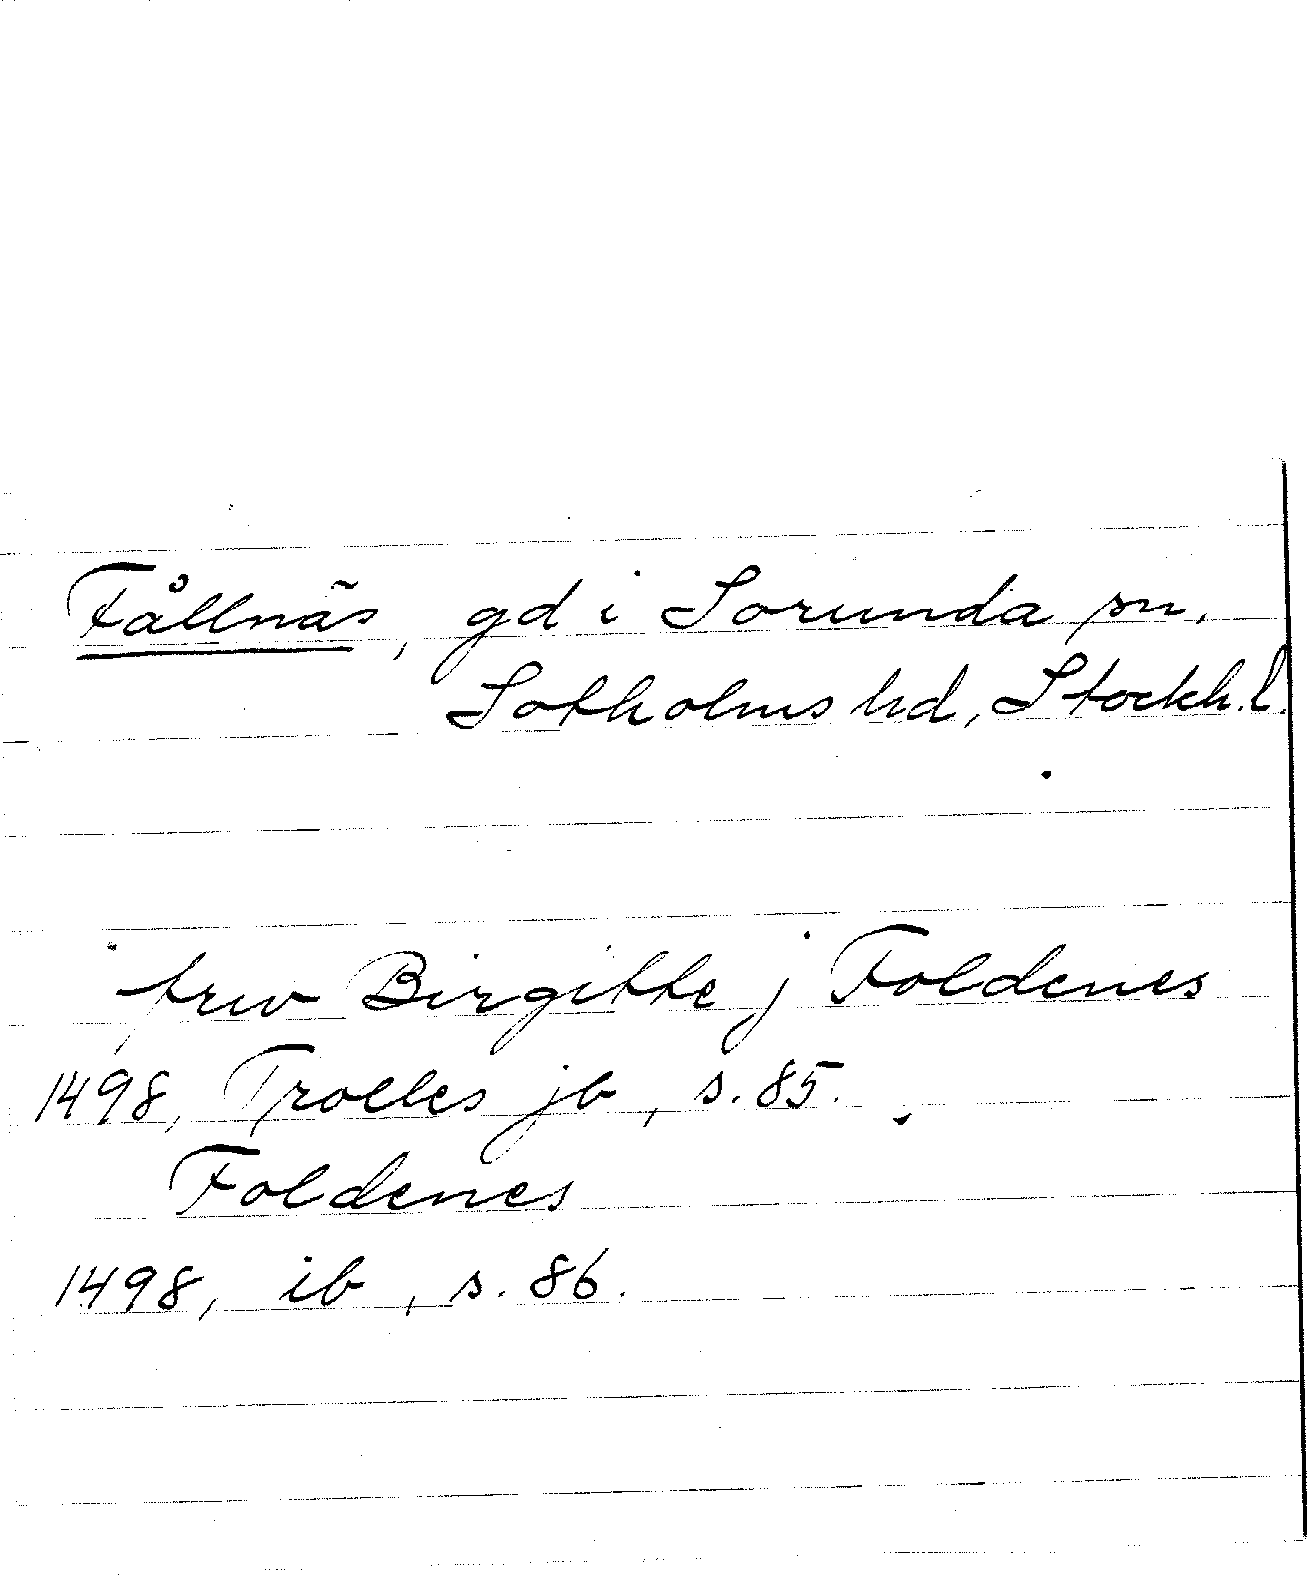 Fållnäs, gd i Sorunda sn.
Sotholms hd, Stockh.l.
frw Birgitte j Foldenes
1498, Trolles jb, s. 85.
Foldenes
1498, ib, s. 86.